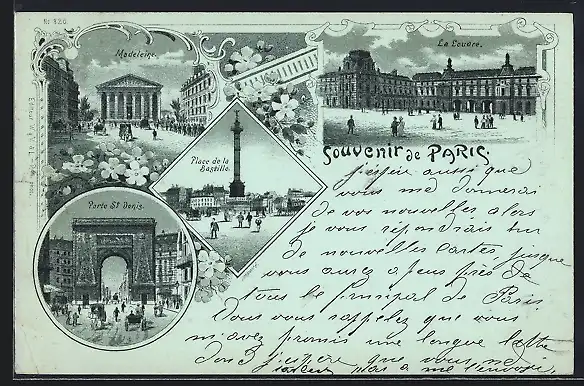 Nº 820
Madeleine.
Le Louvre.
Place de la
Bastille.
Porte St Denis.
Souvenir de PARIS
j'espère aussi que
vous me donnerai
de vos nouvelles alors
je vous répondrais sur
de nouvelles cartes, jusque
vous aurez a peus près de
tous le principal de Paris
Vous vous rappelez que vous
m'avez promis une longue lettre
donc j'espère que vous ne
pas a me l'envoyer